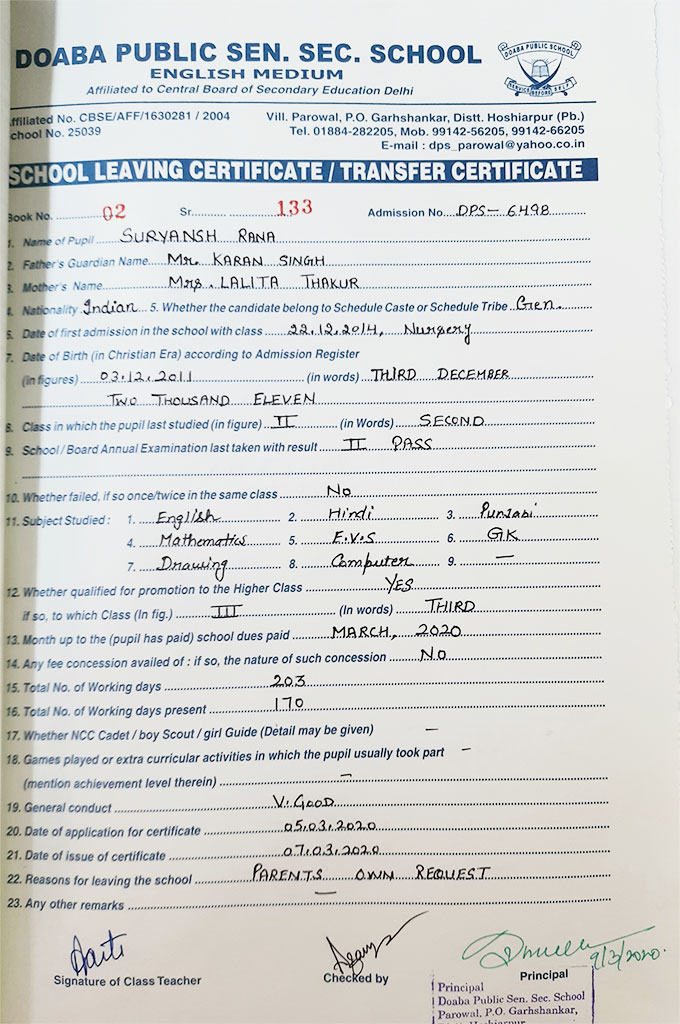 DOABA PUBLIC SEN. SEC. SCHOOL
DOABA PUBLIC SCHOOL
SERVICE BEFORE SELF
ENGLISH MEDIUM
Affiliated to Central Board of Secondary Education Delhi
ffiliated No. CBSE/AFF/1630281 / 2004 Vill. Parowal, P.O. Garhshankar, Distt. Hoshiarpur (Pb.)
chool No. 25039 Tel. 01884-282205, Mob. 99142-56205, 99142-66205
E-mail : dps_parowal@yahoo.co.in
SCHOOL LEAVING CERTIFICATE / TRANSFER CERTIFICATE
Book No. 02 Sr. 133 Admission No. DPS-6498
1. Name of Pupil SURYANSH RANA
2. Father's Guardian Name Mr. KARAN SINGH
3. Mother's Name Mrs. LALITA THAKUR
4. Nationality Indian 5. Whether the candidate belong to Schedule Caste or Schedule Tribe Gen.
6. Date of first admission in the school with class 22.12.2014, Nursery
7. Date of Birth (in Christian Era) according to Admission Register
(in figures) 03.12.2011 (in words) THIRD DECEMBER
TWO THOUSAND ELEVEN
8. Class in which the pupil last studied (in figure) II (in Words) SECOND
9. School / Board Annual Examination last taken with result II PASS
10. Whether failed, if so once/twice in the same class No
11. Subject Studied : 1. English 2. Hindi 3. Punjabi
4. Mathematics 5. E.V.S 6. GK
7. Drawing 8. Computer 9. —
12. Whether qualified for promotion to the Higher Class YES
if so, to which Class (In fig.) III (In words) THIRD
13. Month up to the (pupil has paid) school dues paid MARCH, 2020
14. Any fee concession availed of : if so, the nature of such concession No
15. Total No. of Working days 203
16. Total No. of Working days present 170
17. Whether NCC Cadet / boy Scout / girl Guide (Detail may be given) —
18. Games played or extra curricular activities in which the pupil usually took part —
(mention achievement level therein) —
19. General conduct V. GOOD
20. Date of application for certificate 05.03.2020
21. Date of issue of certificate 07.03.2020
22. Reasons for leaving the school PARENTS OWN REQUEST
23. Any other remarks —
9/3/2020.
Signature of Class Teacher Checked by Principal
Principal
Doaba Public Sen. Sec. School
Parowal, P.O. Garhshankar,